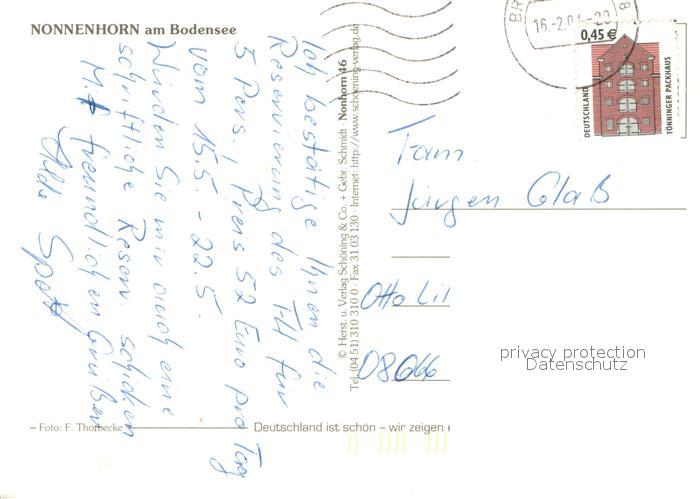 NONNENHORN am Bodensee
Ich bestätige Ihnen die
Reservierung des FH für
3 Pers., Preis 52 Euro pro Tag
vom 15.5. - 22.5.
Würden Sie mir auch eine
schriftliche Reserv. schicken
M. freundlichen Grüßen
Spatz
– Foto: F. Thorbecke
Deutschland ist schön – wir zeigen e
© Herst. u. Verlag Schöning & Co. + Gebr. Schmidt · Nonhorn 46
Tel. (04 51) 310 310 0 · Fax 31 03 130 · Internet: http://www.schoening-verlag.de
BR
16.-2.0 -20
8
0,45 €
DEUTSCHLAND
TÖNNINGER PACKHAUS
Fam.
Jürgen Glaß
Otto Lil
08066
privacy protection
Datenschutz